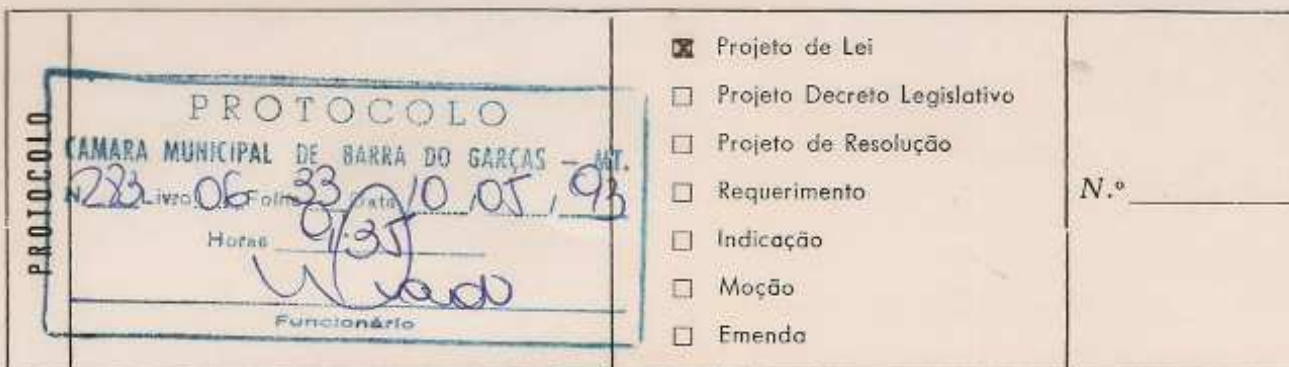 PROTOCOLO
PROTOCOLO
CAMARA MUNICIPAL DE BARRA DO GARÇAS - MT.
N 283 Livro 06 Folha 33 Data 10, 05, 93
Horas 9:35
Funcionário
Projeto de Lei
Projeto Decreto Legislativo
Projeto de Resolução
Requerimento
Indicação
Moção
Emenda
N.º